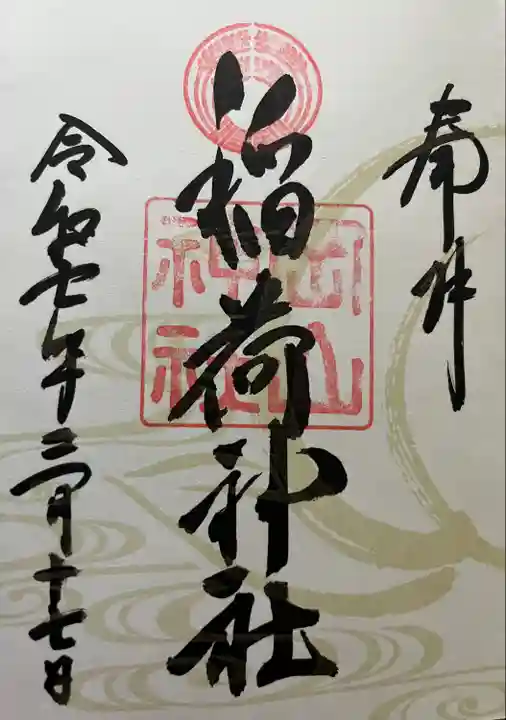 奉拝
稲荷神社
岡山神社
令和七年三月十七日